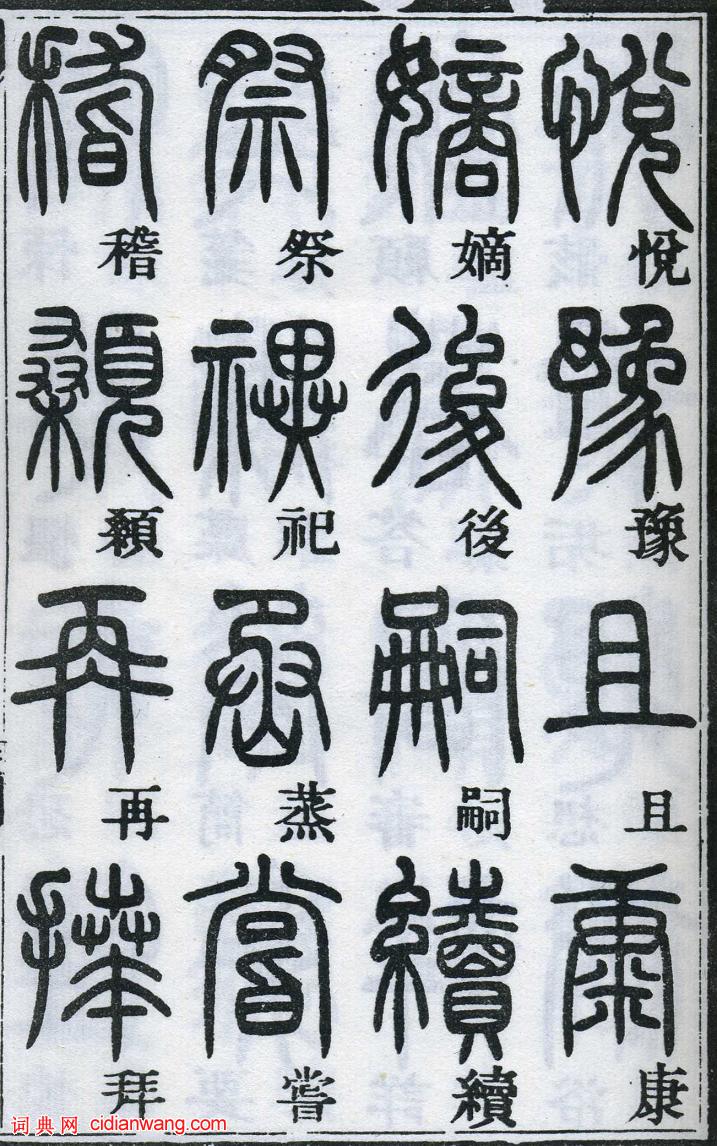 悅豫且康
嫡後嗣續
祭祀蒸嘗
稽顙再拜
词典网 cidianwang.com